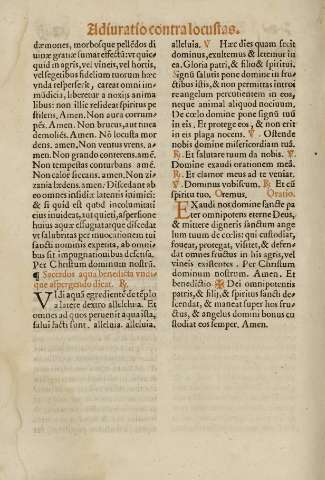 Adiuratio contra locustas.
dæmones, morbosque pellēdos di
uinæ gratiæ sumat effectū: vt quic
quid in agris, vel vineis, vel hortis,
vel segetibus fidelium tuorum hæc
vnda resperserit, careat omni im-
mūditia, liberetur a noxijs anima
libus: non illic resideat spiritus pe
stilens. Amen. Non aura corrum-
pēs. Amen. Non brucus, aut tinea
demolēs. Amen. Nō locusta mor
dens. amen. Non ventus vrens. a-
men. Non grando conterens. amē.
Non tempestas conturbans. amē.
Non calor siccans. amen. Non zi-
zania lædens. amen. Discedant ab
eo omnes insidiæ latentis inimici:
& si quid est quod incolumitati
eius inuideat, aut quieti, aspersione
huius aquæ effugiat atque discedat
vt salubritas per inuocationem tui
sancti nominis expetita, ab omni-
bus sit impugnationibus defensa.
Per Christum dominum nostrū.
¶ Sacerdos aqua benedicta vndi-
que aspergendo dicat. ℟.
VIdi aquā egrediente de tēplo
a latere dextro alleluia. Et
omnes ad quos peruenit aqua ista,
salui facti sunt. alleluia. alleluia.
alleluia. ℣ Hæc dies quam fecit
dominus, exultemus & lætemur in
ea. Gloria patri, & filio & spiritui.
Signū salutis pone domine in fru-
ctibus istis, & non permittas introi
re angelum percutientem in eos,
neque animal aliquod nociuum,
De cœlo domine pone signū tuū
in eis, Et protege eos, & non erit
in eis plaga nocens. ℣. Ostende
nobis domine misericordiam tuā.
℟. Et salutare tuum da nobis. ℣.
Domine exaudi orationem meā.
℟. Et clamor meus ad te veniat.
℣. Dominus vobiscum. ℟. Et cū
spiritu tuo. Oremus. Oratio.
EXaudi nos domine sancte pa
ter omnipotens eterne Deus,
& mittere digneris sanctum ange
lum tuum de cœlis: qui custodiat,
foueat, protegat, visitet, & defen-
dat omnes fructus in his agris, vel
vineis existentes. Per Christum
dominum nostrum. Amen. Et
benedictio ✠ Dei omnipotentis
patris, & filij, & spiritus sancti de-
scendat, & maneat super hos fru-
ctus, & angelus domini bonus cu
stodiat eos semper. Amen.